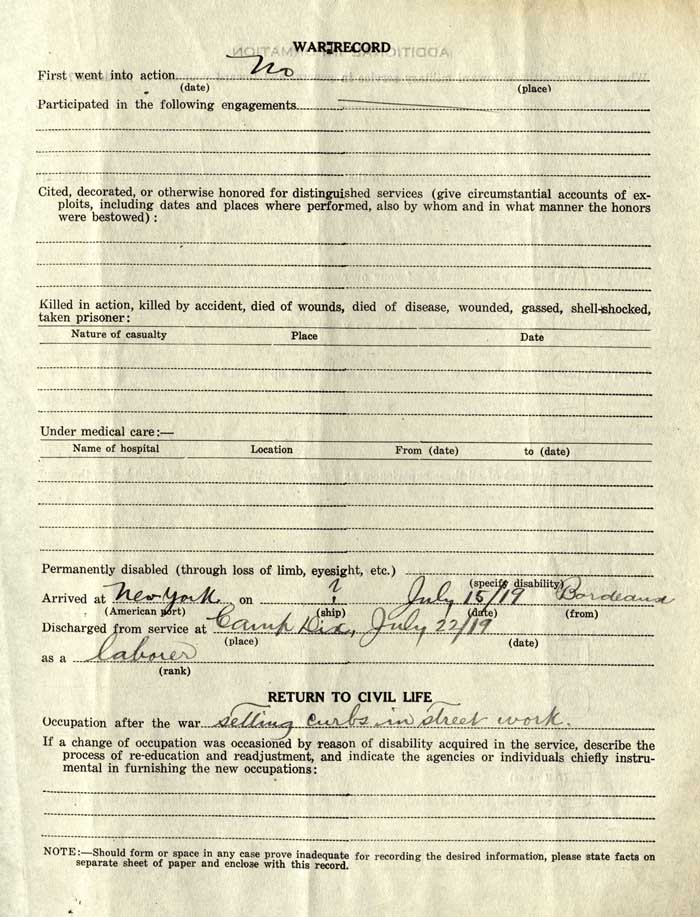 WAR RECORD
First went into action No
(date) (place)
Participated in the following engagements
Cited, decorated, or otherwise honored for distinguished services (give circumstantial accounts of ex-
ploits, including dates and places where performed, also by whom and in what manner the honors
were bestowed) :
Killed in action, killed by accident, died of wounds, died of disease, wounded, gassed, shell-shocked,
taken prisoner:
Nature of casualty Place Date
Under medical care:—
Name of hospital Location From (date) to (date)
Permanently disabled (through loss of limb, eyesight, etc.)
(specify disability)
Arrived at New York on ? July 15/19 Bordeaux
(American port) (ship) (date) (from)
Discharged from service at Camp Dix, July 22/19
(place) (date)
as a laborer
(rank)
RETURN TO CIVIL LIFE
Occupation after the war setting curbs in street work.
If a change of occupation was occasioned by reason of disability acquired in the service, describe the
process of re-education and readjustment, and indicate the agencies or individuals chiefly instru-
mental in furnishing the new occupations:
NOTE:—Should form or space in any case prove inadequate for recording the desired information, please state facts on
separate sheet of paper and enclose with this record.